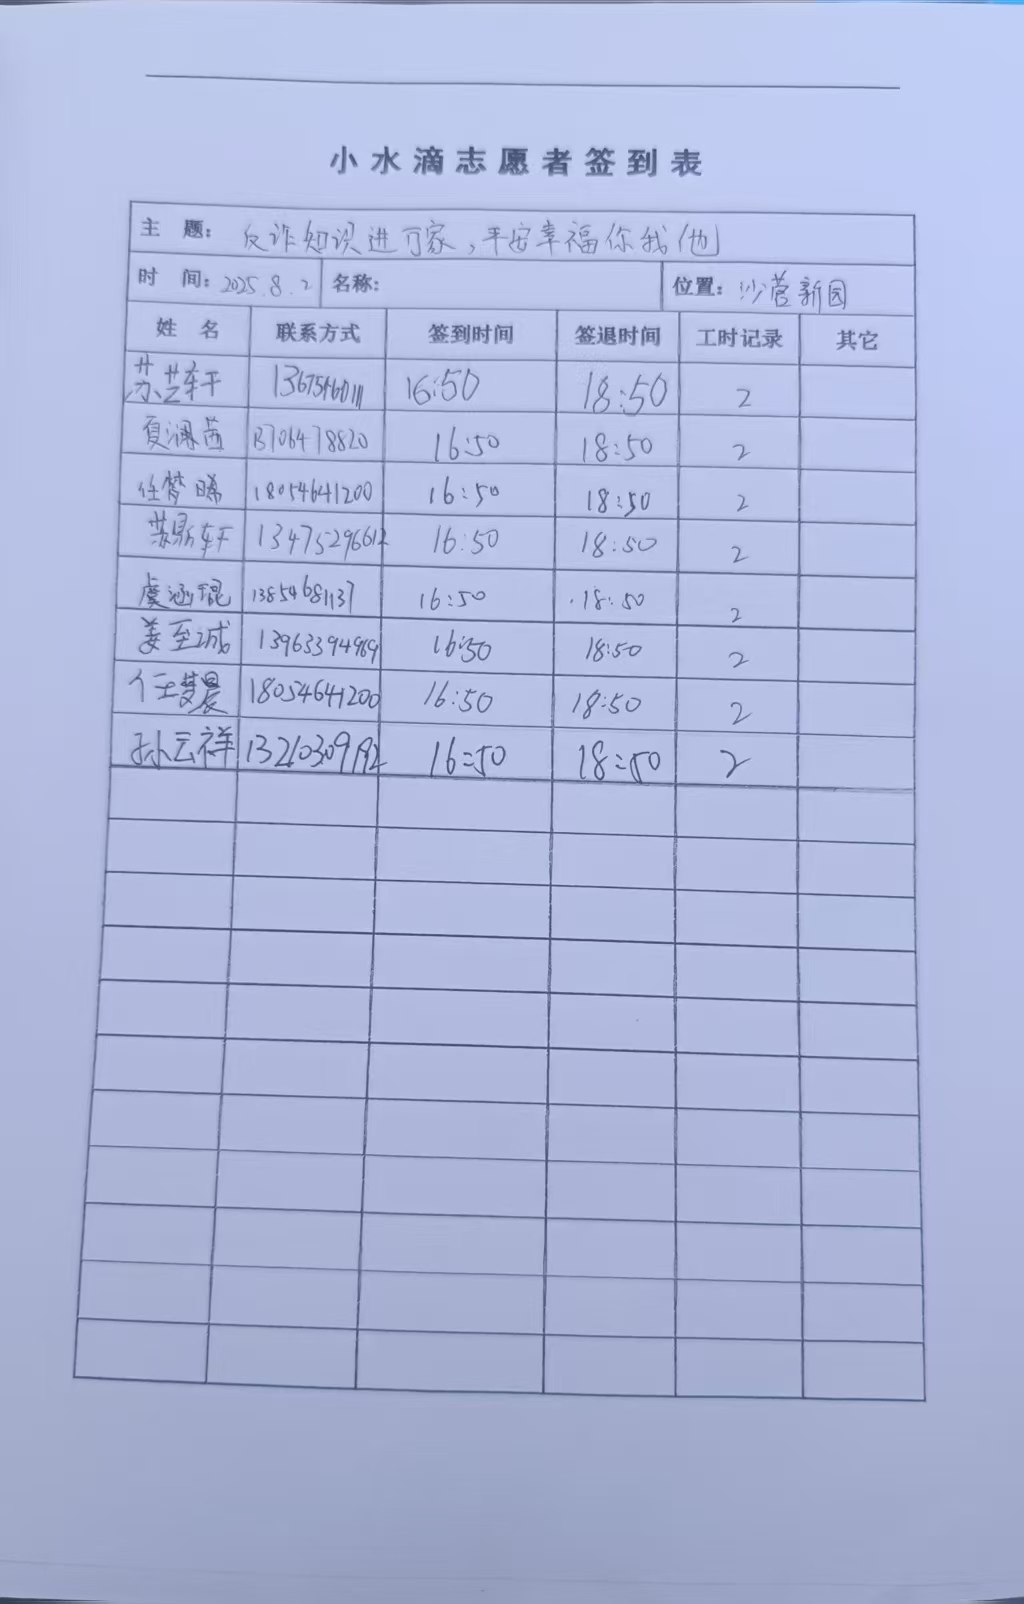 小水滴志愿者签到表
主 题： 反诈知识进万家，平安幸福你我他
时 间： 2025.8.2 名称： 位置： 沙营新园
姓 名 联系方式 签到时间 签退时间 工时记录 其它
苏芸轩 16:50 18:50 2
夏润茜 13706478820 16:50 18:50 2
任梦晞 18054641200 16:50 18:50 2
苏鼎轩 13475296612 16:50 18:50 2
虞涵琨 13854681137 16:50 18:50 2
姜至诚 13963394989 16:50 18:50 2
任梦晨 18054641200 16:50 18:50 2
孙云祥 13210309192 16:50 18:50 2